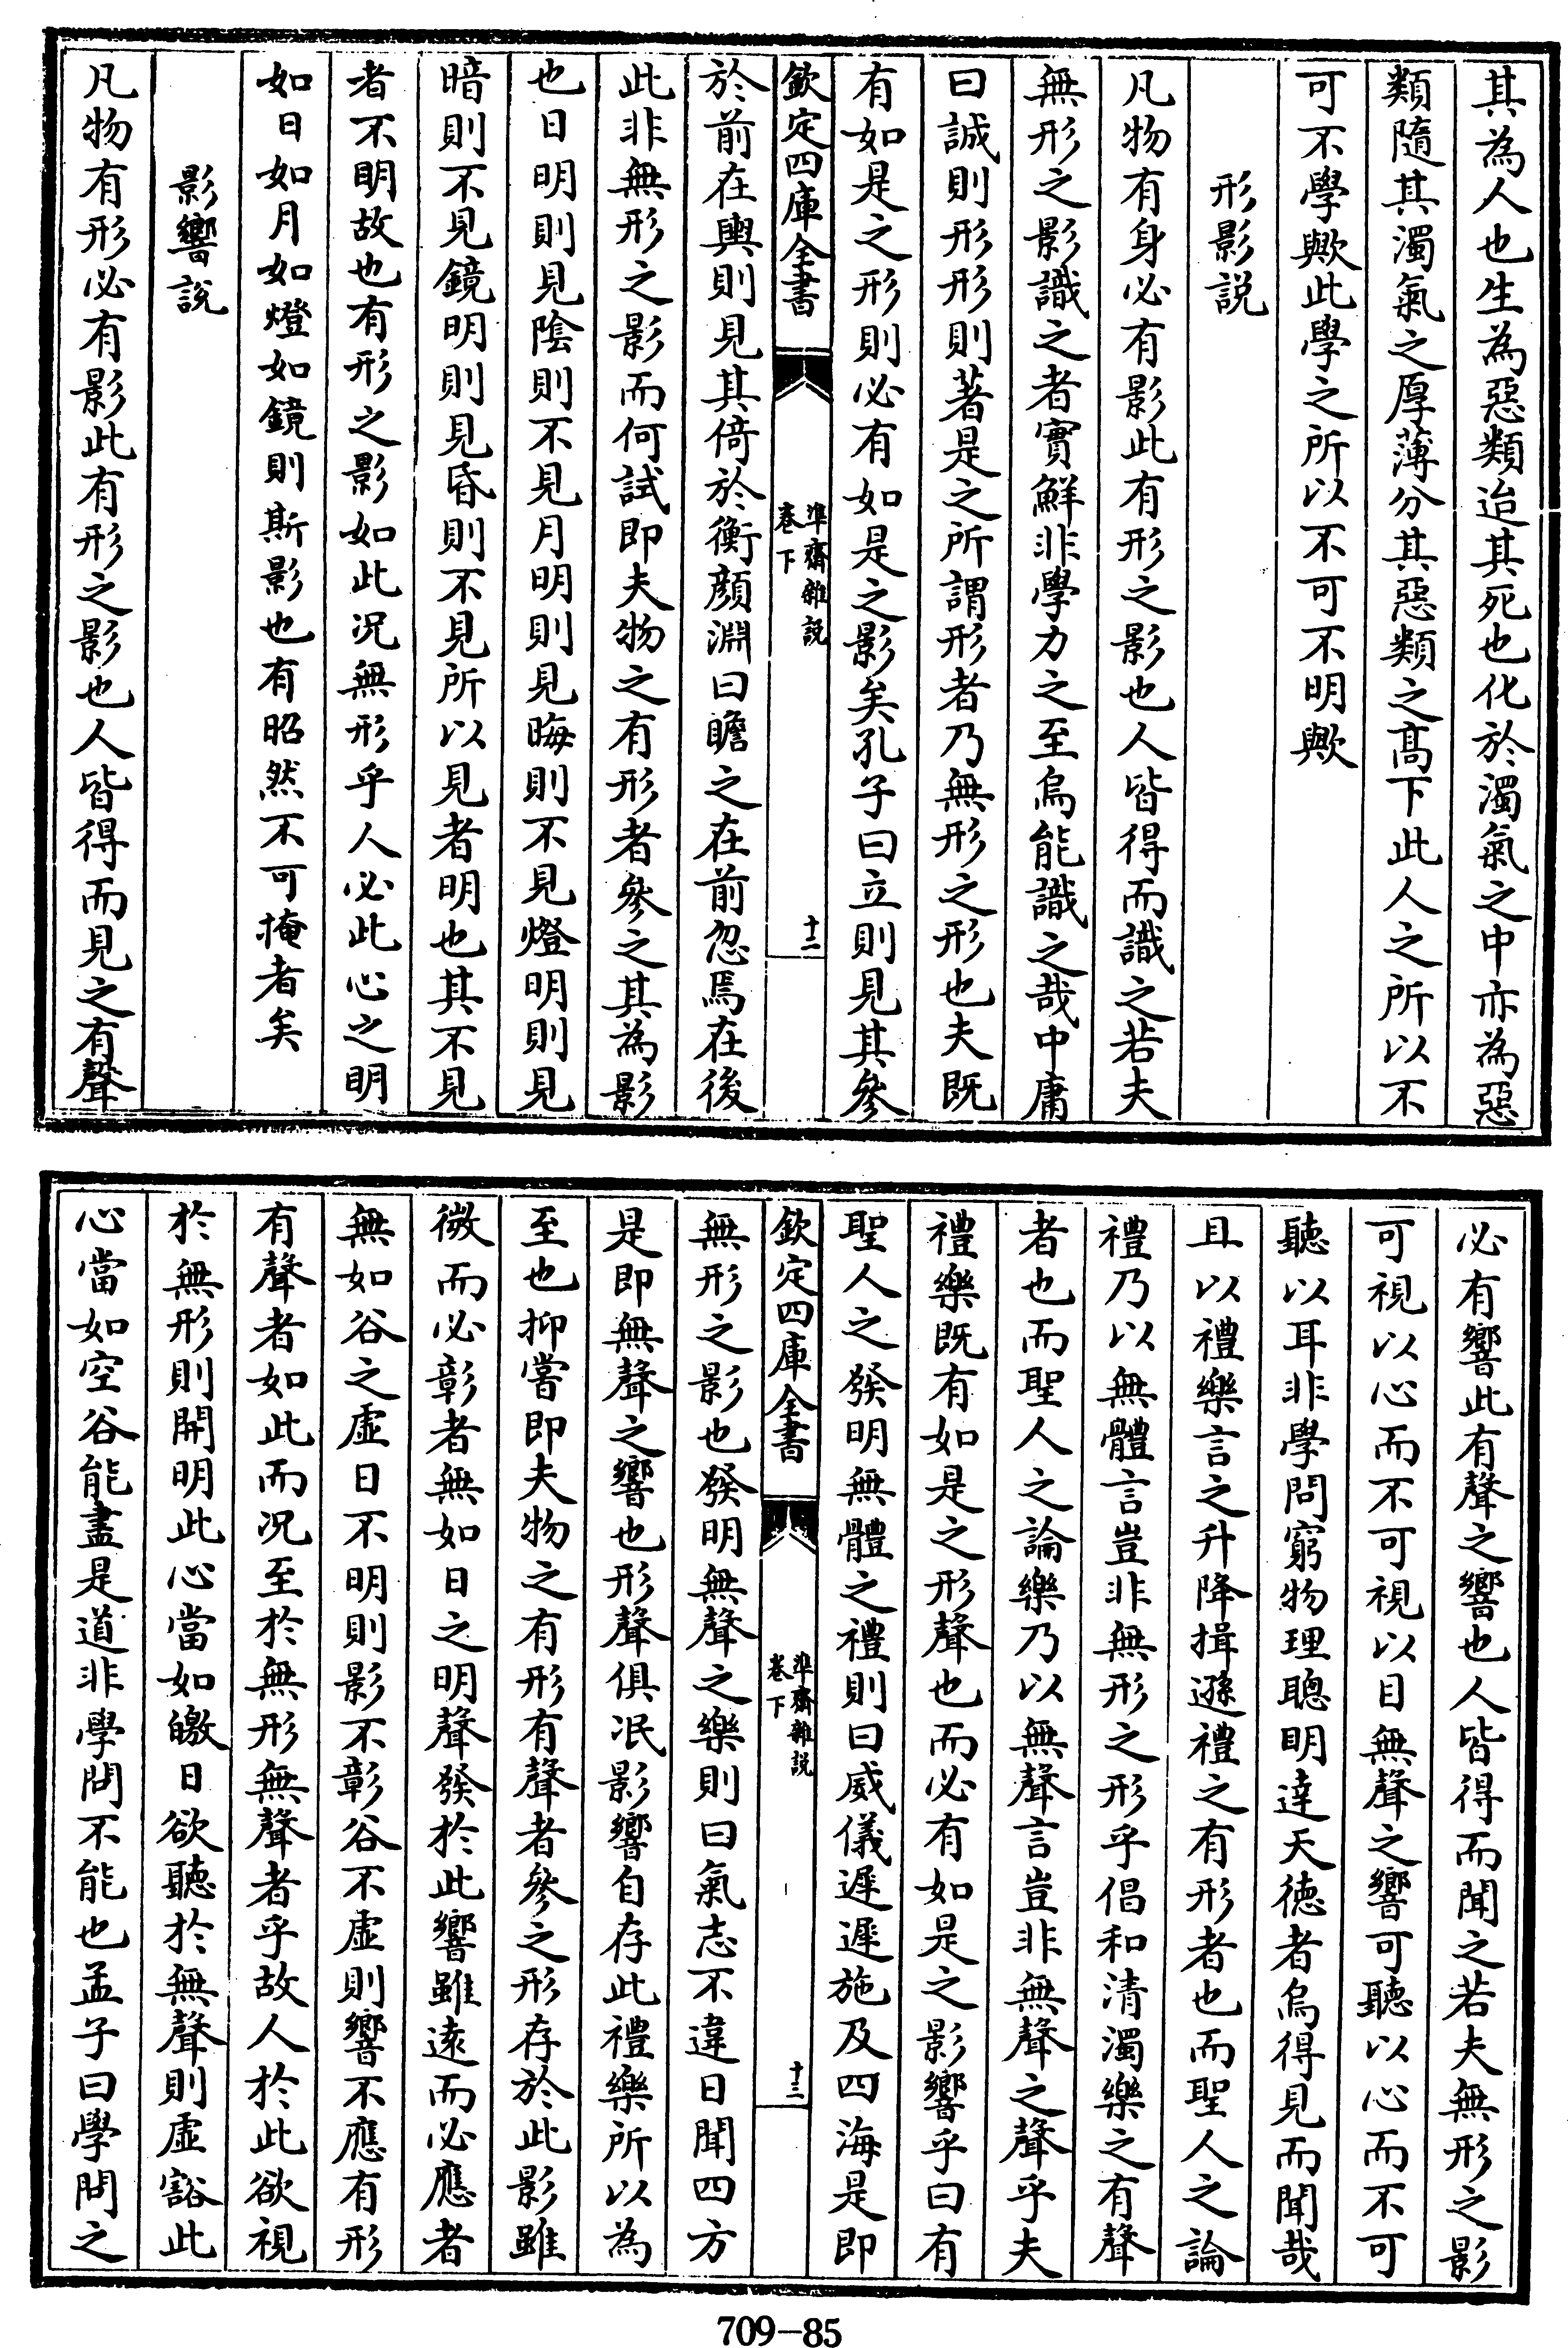 其為人也生為惡類迨其死也化於濁氣之中亦為惡
類隨其濁氣之厚薄分其惡類之髙下此人之所以不
可不學歟此學之所以不可不明歟
形影説
凡物有身必有影此有形之影也人皆得而識之若夫
無形之影識之者實鮮非學力之至烏能識之哉中庸
曰誠則形形則著是之所謂形者乃無形之形也夫既
有如是之形則必有如是之影矣孔子曰立則見其參
欽定四庫全書
準齋雜説
卷下
十二
於前在輿則見其倚於衡顔淵曰瞻之在前忽焉在後
此非無形之影而何試即夫物之有形者參之其為影
也日明則見陰則不見月明則見晦則不見燈明則見
暗則不見鏡明則見昏則不見所以見者明也其不見
者不明故也有形之影如此况無形乎人必此心之明
如日如月如燈如鏡則斯影也有昭然不可掩者矣
影響説
凡物有形必有影此有形之影也人皆得而見之有聲
必有響此有聲之響也人皆得而聞之若夫無形之影
可視以心而不可視以目無聲之響可聽以心而不可
聽以耳非學問窮物理聰明達天徳者烏得見而聞哉
且以禮樂言之升降揖遜禮之有形者也而聖人之論
禮乃以無體言豈非無形之形乎倡和清濁樂之有聲
者也而聖人之論樂乃以無聲言豈非無聲之聲乎夫
禮樂既有如是之形聲也而必有如是之影響乎曰有
聖人之發明無體之禮則曰威儀遲遲施及四海是即
欽定四庫全書
準齋雜説
卷下
十三
無形之影也發明無聲之樂則曰氣志不違日聞四方
是即無聲之響也形聲俱泯影響自存此禮樂所以為
至也抑嘗即夫物之有形有聲者參之形存於此影雖
微而必彰者無如日之明聲發於此響雖遠而必應者
無如谷之虛日不明則影不彰谷不虛則響不應有形
有聲者如此而况至於無形無聲者乎故人於此欲視
於無形則開明此心當如皦日欲聽於無聲則虛豁此
心當如空谷能盡是道非學問不能也孟子曰學問之
709-85